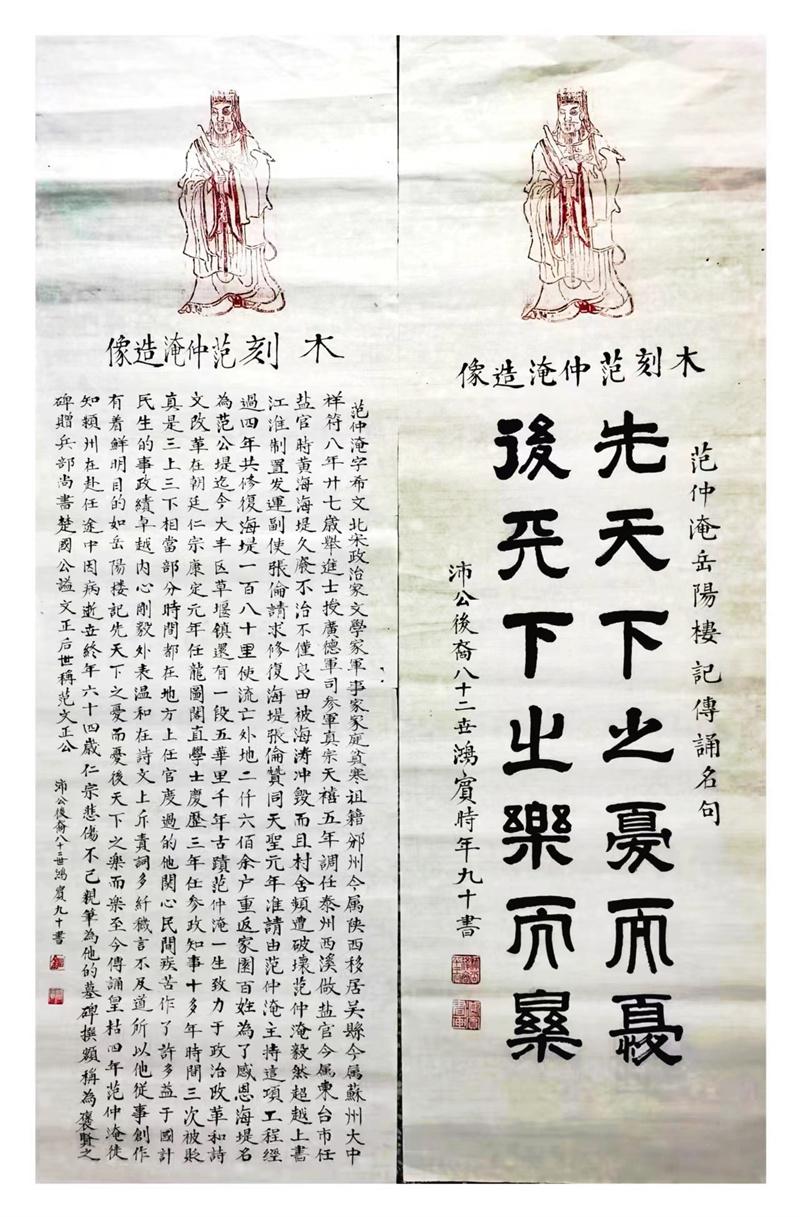 木刻范仲淹造像
范仲淹岳陽樓記傳誦名句
先天下之憂而憂
後天下之樂而樂
沛公後裔八十二世鴻賓時年九十書
木刻范仲淹造像
范仲淹字希文北宋政治家文學家軍事家家庭貧寒祖籍邠州今属陕西移居吴縣今属蘇州大中
祥符八年廿七歲舉進士授廣德軍司参軍真宗天禧五年調任泰州西溪做盐官今属東台市任
盐官時黄海海堤久廢不治不僅良田被海涛冲毁而且村舍頻遭破壞范仲淹毅然超越上書
江淮制置发運副使張倫請求修復海堤張倫贊同天聖元年准請由范仲淹主持這項工程經
過四年共修復海堤一百八十里使流亡外地二仟六佰余户重返家園百姓為了感恩海堤名
為范公堤迄今大丰区草堰镇還有一段五華里千年古蹟范仲淹一生致力于政治政革和詩
文改革在朝廷仁宗康定元年任龍圖閣直學士慶歷三年任参政知事十多年時間三次被貶
真是三上三下相當部分時間都在地方上任官度過的他関心民間疾苦作了許多益于國計
民生的事政績卓越内心剛毅外表温和在詩文上斥責詞多纤穢言不及道所以他従事創作
有着鮮明目的如岳陽楼記先天下之憂而憂後天下之樂而樂至今傳誦皇祜四年范仲淹徙
知頴州在赴任途中因病逝世終年六十四歲仁宗悲傷不已親筆為他的墓碑撰額稱為褒賢之
碑贈兵部尚書楚國公謚文正后世稱范文正公
沛公後裔八十二世鴻賓九十書